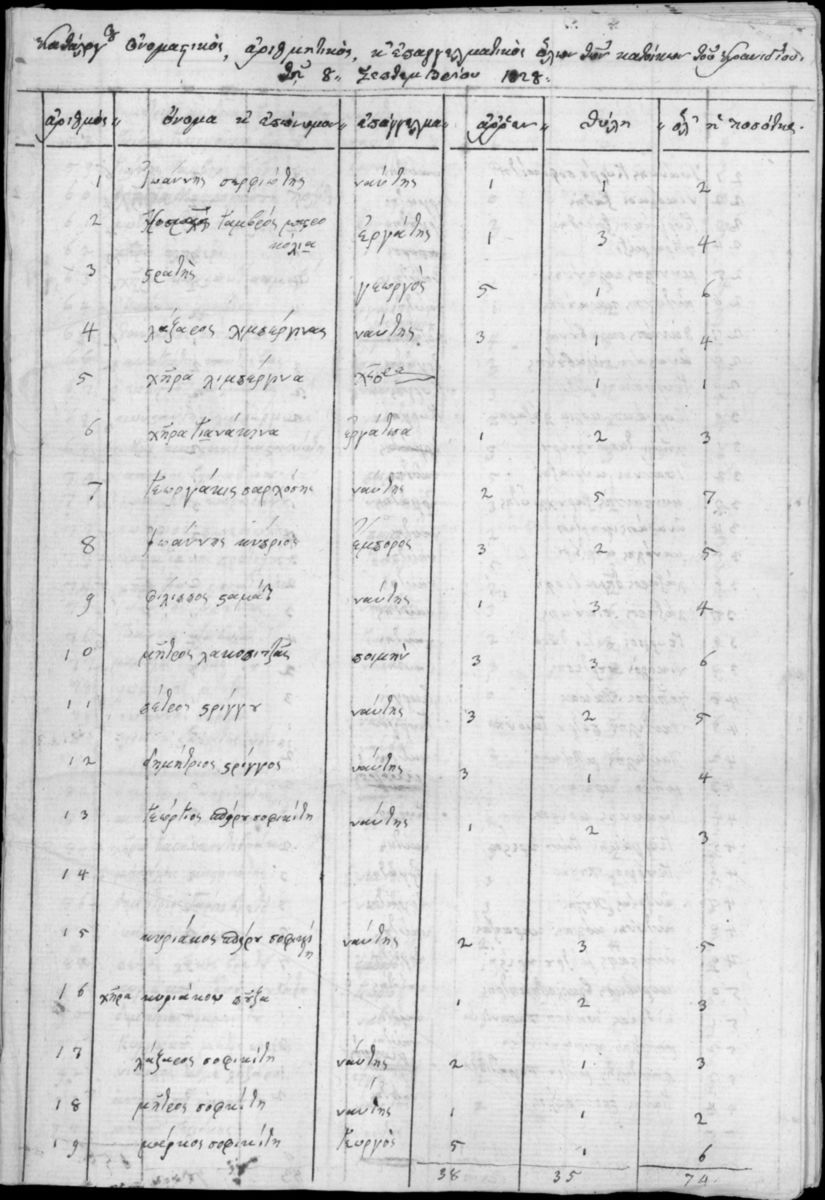 Κατάλογος ὀνομαστικὸς, ἀριθμητικὸς, κ ἐπαγγελματικὸς ὅλων τῶν κατοίκων τοῦ Κρανιδίου.
τῇ 8 Σεπτεμβρίου 1828.
ἀριθμὸς ὄνομα κ ἐπώνυμον ἐπάγγελμα ἀῤῥεν θήλη ὅλ ἡ ποσότης.
1 Ἰωάννης σερφιώτης ναύτης 1 1 2
2 γαμβρός μπεο
κόλια ἐργάτης 1 3 4
3 ϛρατῆς γεωργός 5 1 6
4 λάζαρος λιμπέργινας ναύτης 3 1 4
5 χῆρα λιμπέργινα χῆρα 1 1
6 χῆρα γιανάκενα ἐργάτισα 1 2 3
7 γεωργάκις σαρλόσης ναύτης 2 5 7
8 Ἰωάννης κύπριος ἔμπορος 3 2 5
9 φίλιππος ϛαμάτ ναύτης 1 3 4
10 μῆτρος λακοπιτζᾶς ποιμὴν 3 3 6
11 πέτρος ϛρίγγȣ ναύτης 3 2 5
12 δημήτριος ϛρίγγος ναύτης 3 1 4
13 γεώργιος σοφικίτη ναύτης 1 2 3
14
15 κυριάκος σοφικί
τη ναύτης 2 3 5
16 χῆρα κυριάκου 1 2 3
17 λάζαρος σοφικίτη ναύτης 2 1 3
18 μῆτρος σοφικίτη ναύτης 1 1 2
19 μάρκος σοφικίτη γεωργός 5 1 6
38 35 74